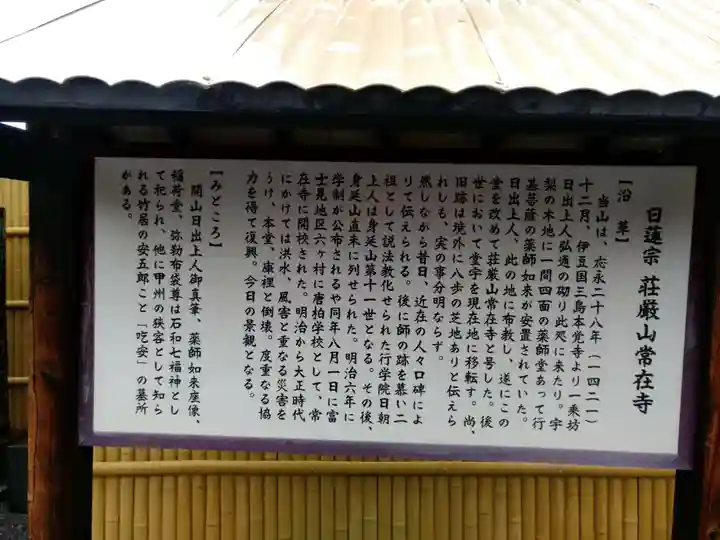 日蓮宗 荘厳山常在寺
【沿革】
当山は、応永二十八年（一四二一）
十二月、伊豆国三島本覚寺より一乗坊
日出上人弘通の砌り此処に来たり。宇
梨の木地に一間四面の薬師堂あって行
基菩薩の薬師如来が安置されていた。
日出上人、此の地に布教し、遂にこの
堂を改めて荘厳山常在寺と号した。後
世において堂宇を現在地に移転す。尚、
旧跡は境外に八歩の芝地ありと伝えら
れしも、実の事分明ならず。
然しながら昔日、近在の人々口碑によ
りて伝えられる。後に師の跡を慕い二
祖として説法教化せられた行学院日朝
上人は身延山第十一世となる。その後、
身延山直末に列せられた。明治六年に
学制が公布されるや同年八月一日に富
士見地区六ヶ村に唐柏学校として、常
在寺に開校された。明治から大正時代
にかけては洪水、風害と重なる災害を
うけ、本堂、庫裡と倒壊。度重なる協
力を得て復興。今日の景観となる。
【みどころ】
開山日出上人御真筆、薬師如来座像、
稲荷堂、弥勒布袋尊は石和七福神とし
て祀られ、他に甲州の狭客として知ら
れる竹居の安五郎こと「吃安」の墓所
がある。